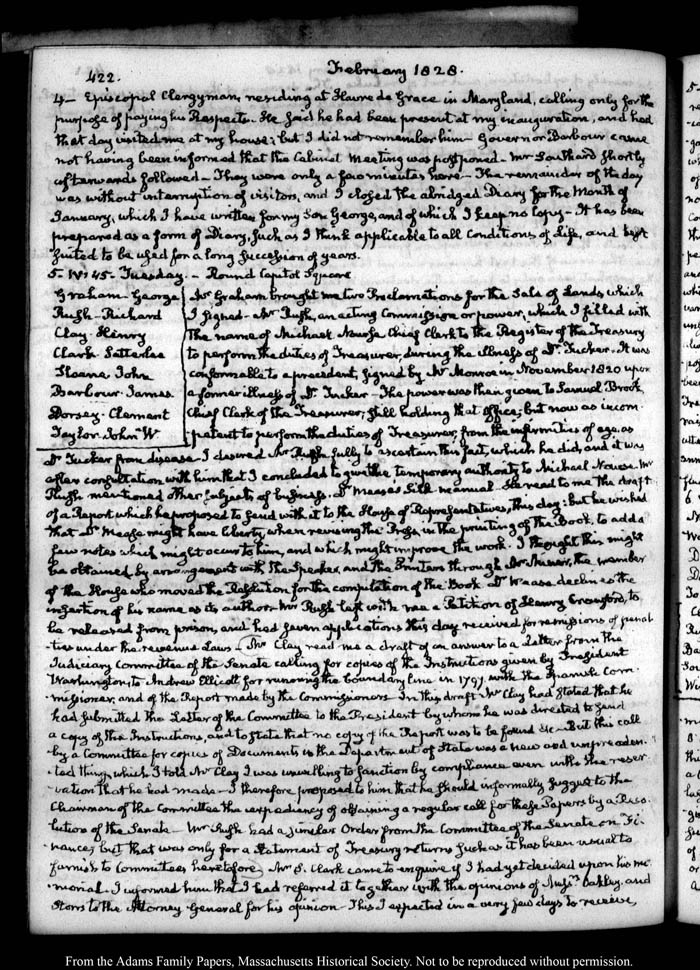 422.
February 1828.
4— Episcopal Clergyman, residing at Havre de Grace in Maryland, calling only for the
purpose of paying his Respects. He said he had been present at my inauguration, and had
that day visited me at my house; but I did not remember him— Governor Barbour came
not having been informed that the Cabinet Meeting was postponed— Mr Southard shortly
afterwards followed— They were only a few minutes here— The remainder of the day
was without interruption of visitors, and I closed the abridged Diary for the Month of
January, which I have written for my Son George, and of which I keep no Copy— It has been
prepared as a form of Diary, such as I think applicable to all Conditions of Life, and best
suited to be used for a long succession of years.
5. IV: 45. Tuesday. — Round Capitol Square
Graham. George
Rush. Richard
Clay. Henry
Clark. Satterlee
Sloane John
Barbour. James
Dorsey. Clement
Taylor. John W
Mr Graham brought me two Proclamations for the Sale of Lands, which
I signed— Mr Rush, an acting Commission or power, which I filled with
the name of Michael Nourse Chief Clerk to the Register of the Treasury
to perform the duties of Treasurer, during the illness of Dr Tucker. It was
conformable to a precedent, signed by Mr Monroe in November 1820 upon
a former illness of Dr Tucker— The power was then given to Samuel Brook
Chief Clerk of the Treasurer; still holding that office; but now as incom
petent to perform the duties of Treasurer, from the infirmities of age, as
Dr Tucker from disease. I desired Mr Rush fully to ascertain this fact, which he did, and it was
after consultation with him that I concluded to give the temporary authority to Michael Nourse. Mr
Rush mentioned other subjects of business. Dr Mease's Silk manual. He read to me the draft
of a Report which he proposed to send with it to the House of Representatives, this day; but he wished
that Dr Mease might have liberty, when revising the Press in the printing of the Book, to add a
few notes which might occur to him, and which might improve the work. I thought this might
be obtained by arrangement with the Speaker, and the Printers through Mr Miner, the member
of the House who moved the Resolution for the compilation of the Book. Dr Mease declines the
insertion of his name as its author. Mr Rush left with me a Petition of Henry Crawford, to
be released from prison, and had seven applications this day received for remissions of penal
ties under the revenue Laws— Mr Clay read me a draft of an answer to a Letter from the
Judiciary Committee of the Senate calling for copies of the Instructions given by President
Washington, to Andrew Ellicott for running the boundary line in 1797. with the Spanish Com
missioner, and of the Report made by the Commissioners. In this draft Mr Clay had stated that he
had submitted the Letter of the Committee to the President by whom he was directed to send
a copy of the Instructions, and to state that no copy of the Report was to be found &c— But this call
by a Committee for copies of Documents in the Department of State was a new and unpreceden
ted thing, which I told Mr Clay I was unwilling to sanction by compliance even with the reser
vation that he had made— I therefore proposed to him that he should informally suggest to the
Chairman of the Committee the expediency of obtaining a regular call for these Papers by a Reso
lution of the Senate— Mr Rush had a similar Order from the Committee of the Senate on Fi
nance; but that was only for a Statement of Treasury returns such as it has been usual to
furnish to Committees heretofore. Mr S. Clark came to enquire if I had yet decided upon his me
morial. I informed him that I had referred it together with the opinions of Oakley, and
Storrs to the Attorney General for his opinion— This I expected in a very few days to receive,
From the Adams Family Papers, Massachusetts Historical Society. Not to be reproduced without permission.